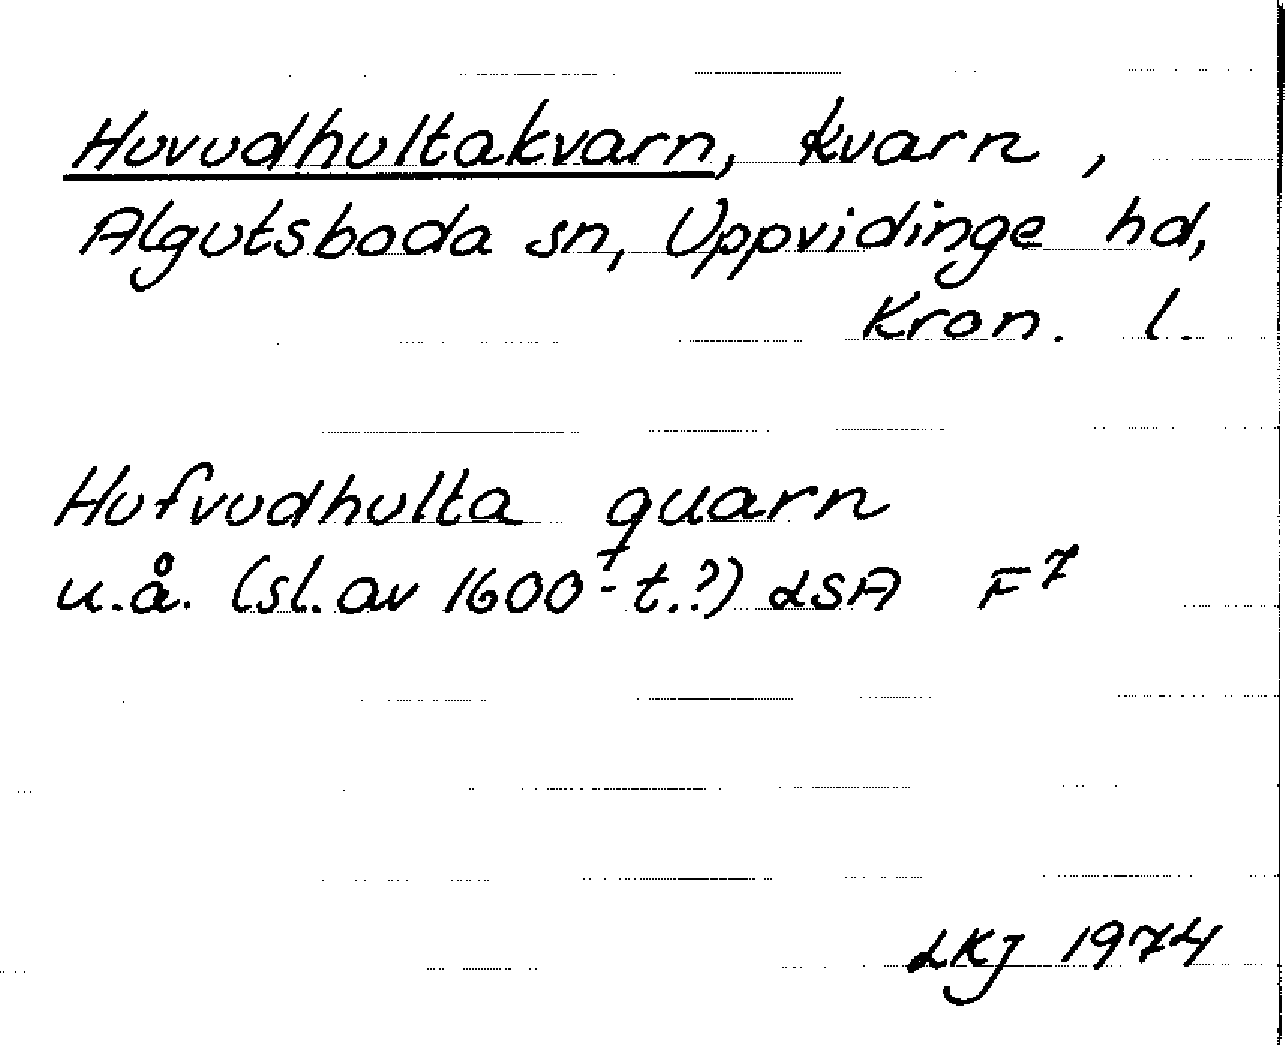 Huvudhultakvarn, kvarn,
Algutsboda sn, Uppvidinge hd,
Kron. l.
Hufvudhulta quarn
u.å. (sl. av 1600-t.?) LSA F7
LKJ 1974